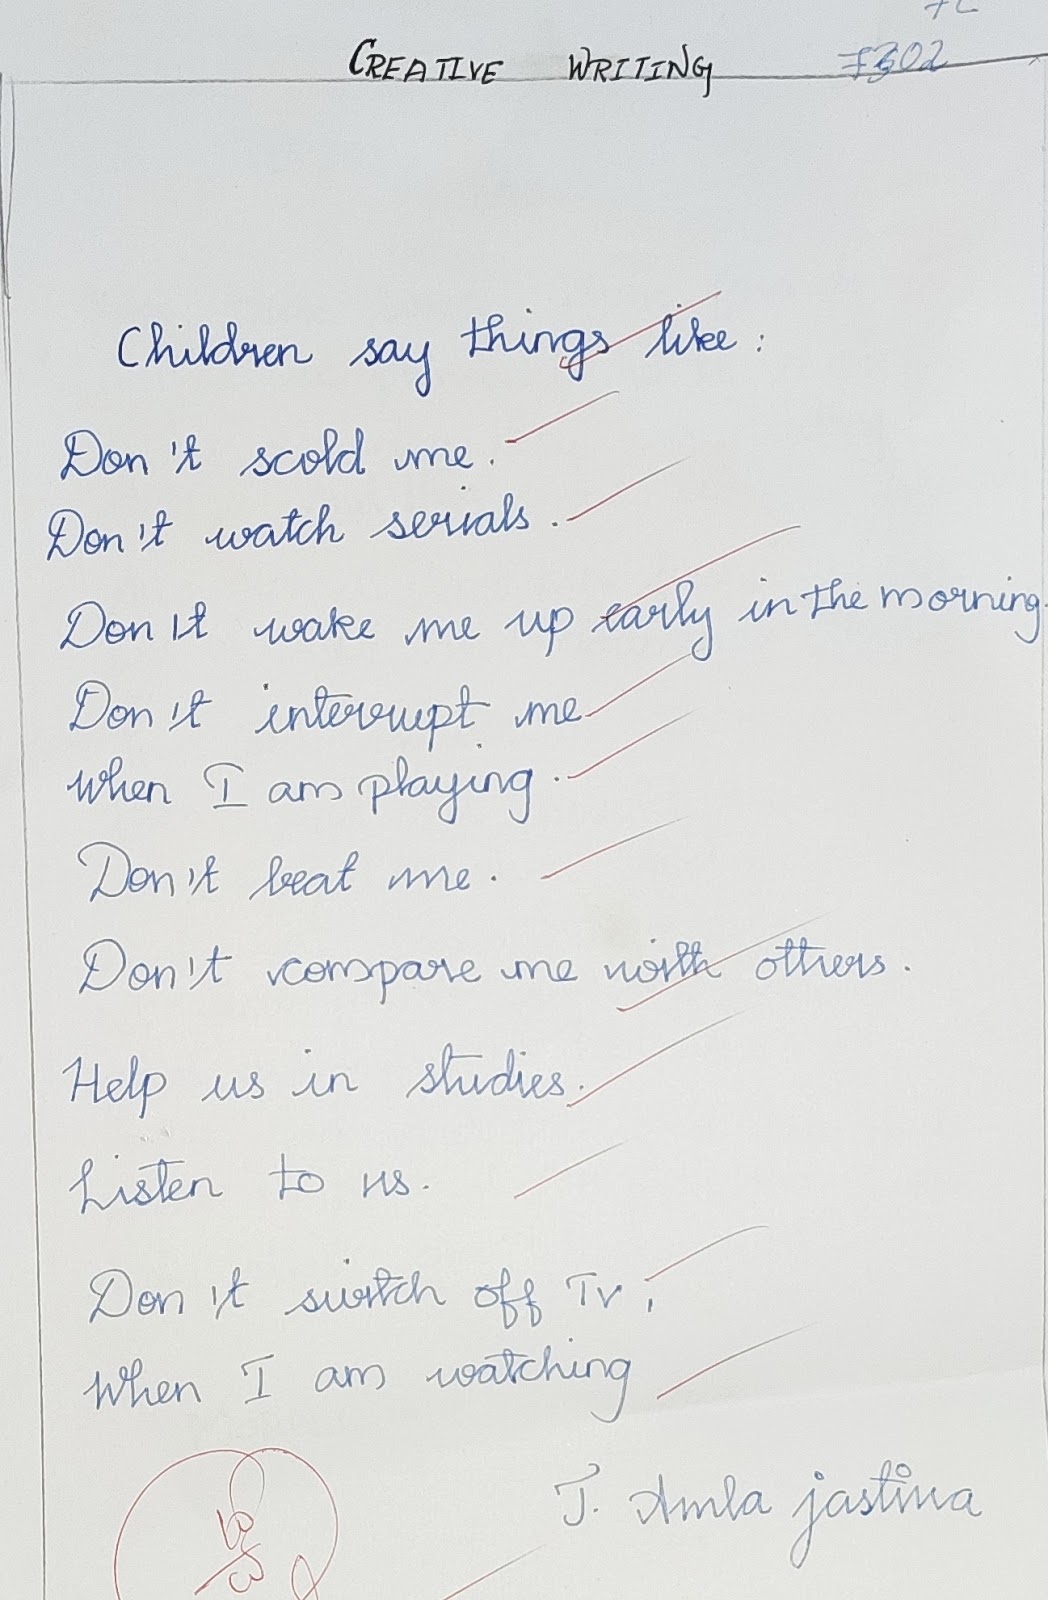 CREATIVE WRITING
Children say things like:
Don't scold me.
Don't watch serials.
Don't wake me up early in the morning.
Don't interrupt me
When I am playing.
Don't beat me.
Don't compare me with others.
Help us in studies.
Listen to us.
Don't switch off TV,
When I am watching
J. Amla jastina